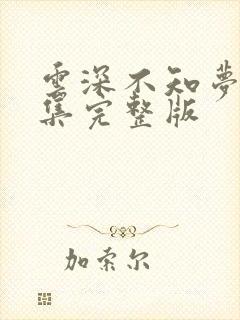 雲深不知夢
集完整版
加索尔